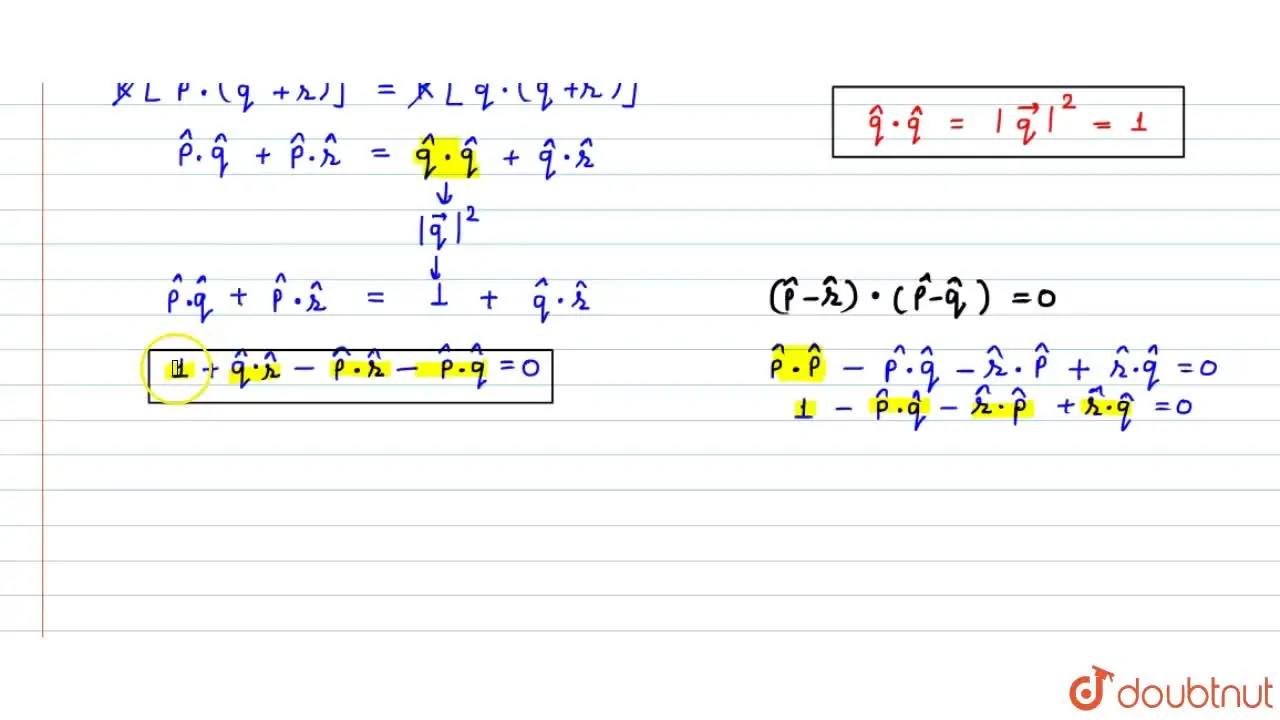 K[ p·(q+r)] = K[ q·(q+r)]
p̂·q̂ + p̂·r̂ = q̂·q̂ + q̂·r̂
↓
|q⃗|²
↓
p̂·q̂ + p̂·r̂ = 1 + q̂·r̂
1 + q̂·r̂ − p̂·r̂ − p̂·q̂ = 0
q̂·q̂ = |q⃗|² = 1
(p̂−r̂)·(p̂−q̂) = 0
p̂·p̂ − p̂·q̂ − r̂·p̂ + r̂·q̂ = 0
1 − p̂·q̂ − r̂·p̂ + r̂·q̂ = 0
doubtnut